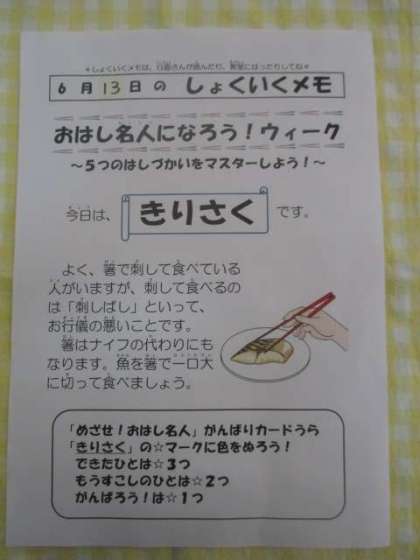 ＊しょくいくメモは、日直さんが読んだり、教室にはったりしてね＊
6月13日の しょくいくメモ
おはし名人になろう！ウィーク
～５つのはしづかいをマスターしよう！～
今日は、 きりさく です。
よく、箸で刺して食べている
人がいますが、刺して食べるの
は「刺しばし」といって、
お行儀の悪いことです。
箸はナイフの代わりにも
なります。魚を箸で一口大
に切って食べましょう。
「めざせ！おはし名人」がんばりカードうら
「きりさく」の☆マークに色をぬろう！
できたひとは☆３つ
もうすこしのひとは☆２つ
がんばろう！は☆１つ